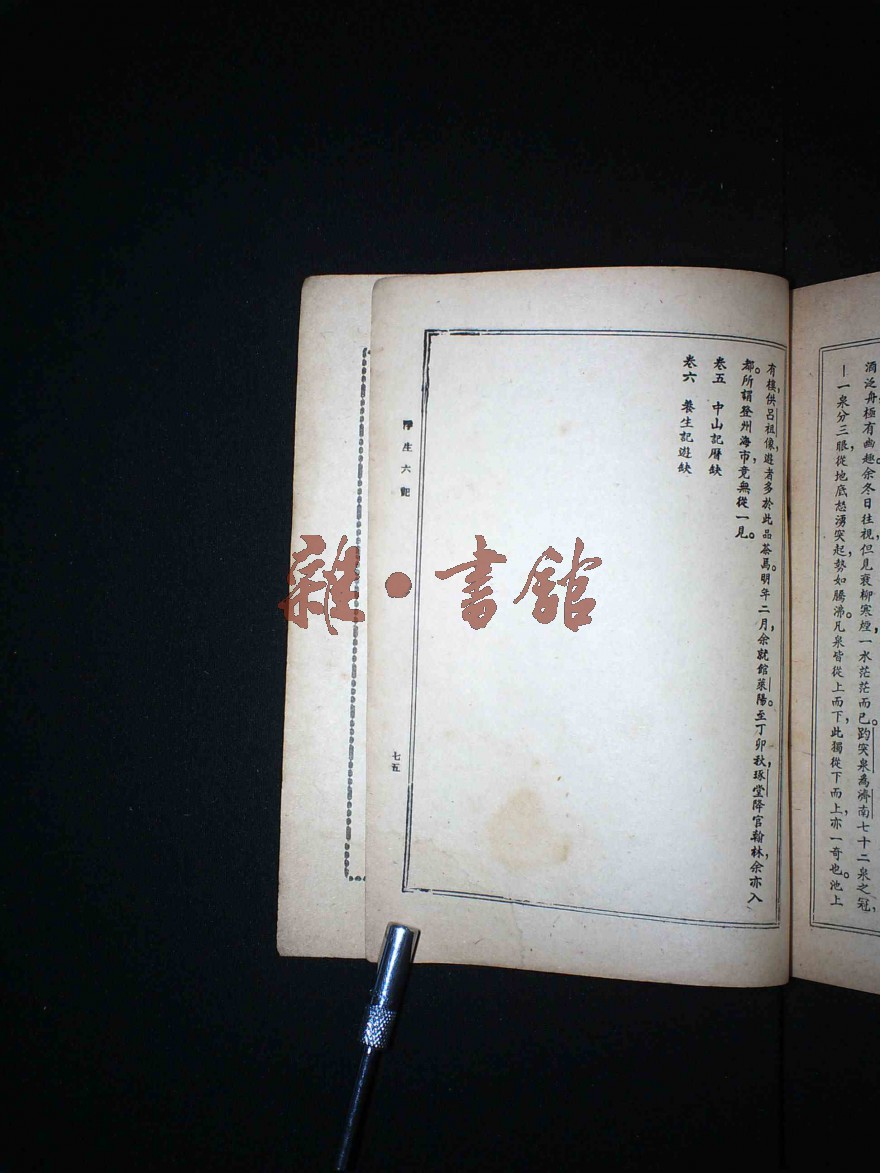 酒泛舟極有幽趣。余冬日往視,但見衰柳寒煙,一水茫茫而已。趵突泉為濟南七十二泉之冠,
一泉分三眼,從地底怒湧突起,勢如騰沸。凡泉皆從上而下,此獨從下而上,亦一奇也。池上
有樓,供呂祖像,遊者多於此品茶焉。明年二月,余就館萊陽。至丁卯秋,琢堂降官翰林,余亦入
都。所謂登州海市,竟無從一見。
卷五 中山記曆缺
卷六 養生記遊缺
浮生六記
七五
雜·書館